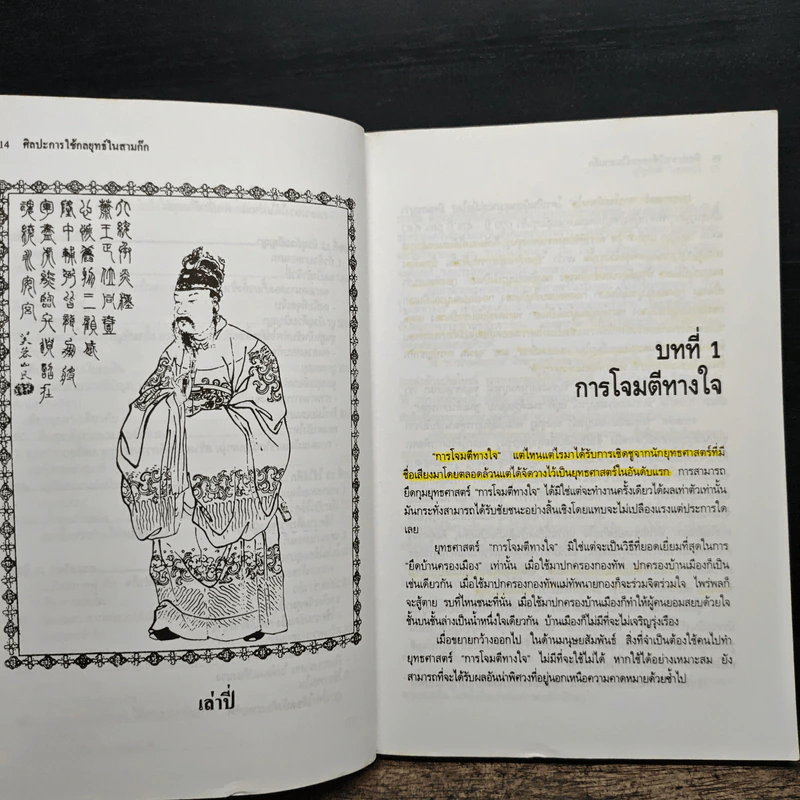 14 ศิลปะการใช้กลยุทธ์ในสามก๊ก
เล่าปี่
บทที่ 1
การโจมตีทางใจ
"การโจมตีทางใจ" แต่ไหนแต่ไรมาได้รับการเชิดชูจากนักยุทธศาสตร์ที่มี
ชื่อเสียงมาโดยตลอดล้วนแต่ได้จัดวางไว้เป็นยุทธศาสตร์ในอันดับแรก การสามารถ
ยึดกุมยุทธศาสตร์ "การโจมตีทางใจ" ได้มิใช่แต่จะทำงานครั้งเดียวได้ผลเท่าตัวเท่านั้น
มันกระทั่งสามารถได้รับชัยชนะอย่างสิ้นเชิงโดยแทบจะไม่เปลืองแรงแต่ประการใด
เลย
ยุทธศาสตร์ "การโจมตีทางใจ" มิใช่แต่จะเป็นวิธีที่ยอดเยี่ยมที่สุดในการ
"ยึดบ้านครองเมือง" เท่านั้น เมื่อใช้มาปกครองกองทัพ ปกครองบ้านเมืองก็เป็น
เช่นเดียวกัน เมื่อใช้มาปกครองกองทัพแม่ทัพนายกองก็จะร่วมจิตร่วมใจ ไพร่พลก็
จะสู้ตาย รบที่ไหนชนะที่นั่น เมื่อใช้มาปกครองบ้านเมืองก็ทำให้ผู้คนยอมสยบด้วยใจ
ชั้นบนชั้นล่างเป็นน้ำหนึ่งใจเดียวกัน บ้านเมืองก็ไม่มีที่จะไม่เจริญรุ่งเรือง
เมื่อขยายกว้างออกไป ในด้านมนุษยสัมพันธ์ สิ่งที่จำเป็นต้องใช้คนไปทำ
ยุทธศาสตร์ "การโจมตีทางใจ" ไม่มีที่จะใช้ไม่ได้ หากใช้ได้อย่างเหมาะสม ยัง
สามารถที่จะได้รับผลอันน่าพิศวงที่อยู่นอกเหนือความคาดหมายด้วยซ้ำไป